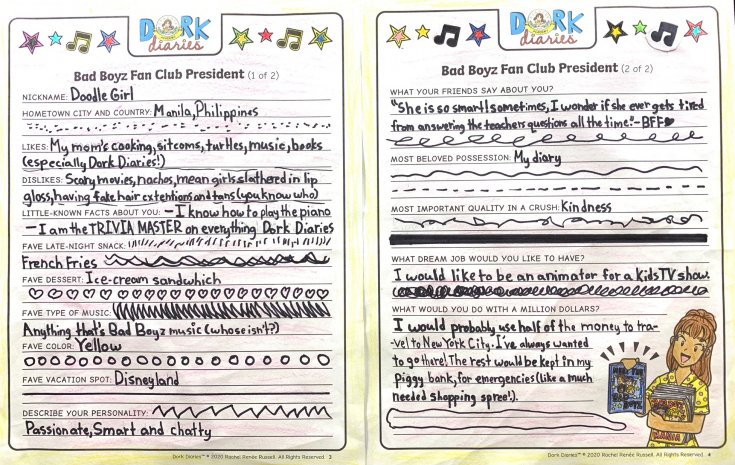 DORK
diaries
Bad Boyz Fan Club President (1 of 2)
NICKNAME: Doodle Girl
HOMETOWN CITY AND COUNTRY: Manila, Philippines
LIKES: My mom's cooking, sitcoms, turtles, music, books
(especially Dork Diaries!)
DISLIKES: Scary movies, nachos, mean girls slathered in lip
gloss, having fake hair extentions and tans (you know who)
LITTLE-KNOWN FACTS ABOUT YOU: -I know how to play the piano
-I am the TRIVIA MASTER on everything Dork Diaries
FAVE LATE-NIGHT SNACK:
French Fries
FAVE DESSERT: Ice-cream sandwhich
FAVE TYPE OF MUSIC:
Anything that's Bad Boyz music (whose isn't?)
FAVE COLOR: Yellow
FAVE VACATION SPOT: Disneyland
DESCRIBE YOUR PERSONALITY:
Passionate, Smart and chatty
Dork Diaries™ © 2020 Rachel Renée Russell. All Rights Reserved. 3
DORK
diaries
Bad Boyz Fan Club President (2 of 2)
WHAT YOUR FRIENDS SAY ABOUT YOU?
"She is so smart! Sometimes, I wonder if she ever gets tired
from answering the teachers questions all the time." -BFF
MOST BELOVED POSSESSION: My diary
MOST IMPORTANT QUALITY IN A CRUSH: Kindness
WHAT DREAM JOB WOULD YOU LIKE TO HAVE?
I would like to be an animator for a kids TV show.
WHAT WOULD YOU DO WITH A MILLION DOLLARS?
I would probably use half of the money to tra-
vel to New York City. I've always wanted
to go there! The rest would be kept in my
Piggy bank, for emergencies (like a much
needed shopping spree!).
MANIA
Dork Diaries™ © 2020 Rachel Renée Russell. All Rights Reserved. 4